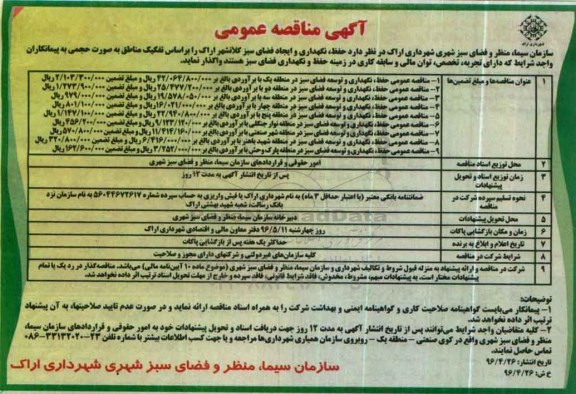 آگهی مناقصه عمومی
سازمان سیما، منظر و فضای سبز شهری شهرداری اراک در نظر دارد حفظ، نگهداری و ایجاد فضای سبز کلانشهر اراک را براساس تفکیک مناطق به صورت حجمی به پیمانکاران
واجد شرایط که دارای تجربه، تخصص، توان مالی و سابقه کاری در زمینه حفظ و نگهداری فضای سبز هستند واگذار نماید.
۱ عنوان مناقصه‌ها و مبلغ تضمین‌ها
۱- مناقصه عمومی حفظ، نگهداری و توسعه فضای سبز در منطقه یک با برآوردی بالغ بر ۴۲/۰۶۲/۸۰۰/۰۰۰ ریال و مبلغ تضمین ۲/۱۰۳/۳۰۰/۰۰۰ ریال
۲- مناقصه عمومی حفظ، نگهداری و توسعه فضای سبز در منطقه دو با برآوردی بالغ بر ۲۵/۴۷۷/۲۰۰/۰۰۰ ریال و مبلغ تضمین ۱/۲۷۳/۹۰۰/۰۰۰ ریال
۳- مناقصه عمومی حفظ، نگهداری و توسعه فضای سبز در منطقه سه با برآوردی بالغ بر ریال و مبلغ تضمین
۴- مناقصه عمومی حفظ، نگهداری و توسعه فضای سبز در منطقه چهار با برآوردی بالغ بر ۱۶/۰۲۱/۰۰۰/۰۰۰ ریال و مبلغ تضمین ۸۰۱/۱۰۰/۰۰۰ ریال
۵- مناقصه عمومی حفظ، نگهداری و توسعه فضای سبز در منطقه پنج با برآوردی بالغ بر ریال و مبلغ تضمین ۱/۱۴۷/۱۰۰/۰۰۰ ریال
۶- مناقصه عمومی حفظ، نگهداری و توسعه فضای سبز در منطقه نوار جنگلی با برآوردی بالغ بر ریال و مبلغ تضمین ۴۵۶/۲۰۰/۰۰۰ ریال
۷- مناقصه عمومی حفظ، نگهداری و توسعه فضای سبز در منطقه شهر صنعتی با برآوردی بالغ بر ۱۱/۴۱۴/۱۶۰/۰۰۰ ریال و مبلغ تضمین ۵۷۰/۸۰۰/۰۰۰ ریال
۸- مناقصه عمومی حفظ، نگهداری و توسعه فضای سبز در منطقه شهید باهنر با برآوردی بالغ بر ۶/۴۱۶/۰۰۰/۰۰۰ ریال و مبلغ تضمین ۳۲۰/۸۰۰/۰۰۰ ریال
۹- مناقصه عمومی حفظ، نگهداری و توسعه فضای سبز در منطقه پارک وحش با برآوردی بالغ بر ۳/۲۵۲/۰۰۰/۰۰۰ ریال و مبلغ تضمین ۱۶۲/۶۰۰/۰۰۰ ریال
۲ محل توزیع اسناد مناقصه امور حقوقی و قراردادهای سازمان سیما، منظر و فضای سبز شهری
۳ زمان توزیع اسناد و تحویل پیشنهادات پس از تاریخ انتشار آگهی به مدت ۱۲ روز
۴ نحوه تسلیم سپرده شرکت در مناقصه ضمانتنامه بانکی معتبر (با اعتبار حداقل ۳ ماه) به نام شهرداری اراک یا فیش واریزی به حساب سپرده شماره ۵۶۰۴۴۶۷۲۶۱۷ به نام سازمان نزد
بانک رسالت، شعبه شهید بهشتی اراک
۵ محل تحویل پیشنهادات دبیرخانه سازمان سیما، منظر و فضای سبز شهری
۶ زمان و مکان بازگشایی پاکات روز چهارشنبه ۹۶/۵/۱۱ دفتر معاون مالی و اقتصادی شهرداری اراک
۷ تاریخ اعلام و ابلاغ به برنده حداکثر یک هفته پس از بازگشایی پاکات
۸ شرایط شرکت در مناقصه کلیه سازمان‌های غیردولتی و شرکتهای دارای مجوز و صلاحیت
۹ شرکت در مناقصه و ارائه پیشنهاد به منزله قبول شروط و تکالیف شهرداری و سازمان سیما، منظر و فضای سبز شهری (موضوع ماده ۱۰ آیین‌نامه مالی) می‌باشد. مناقصه‌گذار در رد یک یا تمام
پیشنهادات مختار است. به پیشنهادات مبهم، مشروط، مخدوش، فاقد شرایط قانونی، فاقد سپرده و خارج از مهلت تحویل اسناد ترتیب اثر داده نخواهد شد.
توضیحات:
۱- پیمانکار می‌بایست گواهینامه صلاحیت کاری و گواهینامه ایمنی و بهداشت شرکت را به همراه اسناد مناقصه ارائه نماید و در صورت عدم تایید صلاحیتها، به آن پیشنهاد
ترتیب اثر داده نخواهد شد.
۲- کلیه متقاضیان واجد شرایط می‌توانند پس از تاریخ انتشار آگهی به مدت ۱۲ روز جهت دریافت اسناد و تحویل پیشنهادات خود به امور حقوقی و قراردادهای سازمان سیما،
منظر و فضای سبز شهری واقع در کوی صنعتی – منطقه یک – روبروی سازمان همیاری شهرداری‌ها مراجعه و یا جهت کسب اطلاعات بیشتر با شماره تلفن ۲۳-۳۳۱۳۲۰۲۰-۰۸۶
تماس حاصل نمایند.
تاریخ انتشار: ۹۶/۴/۲۶
خ ش: ۹۶/۴/۲۶
سازمان سیما، منظر و فضای سبز شهری شهرداری اراک